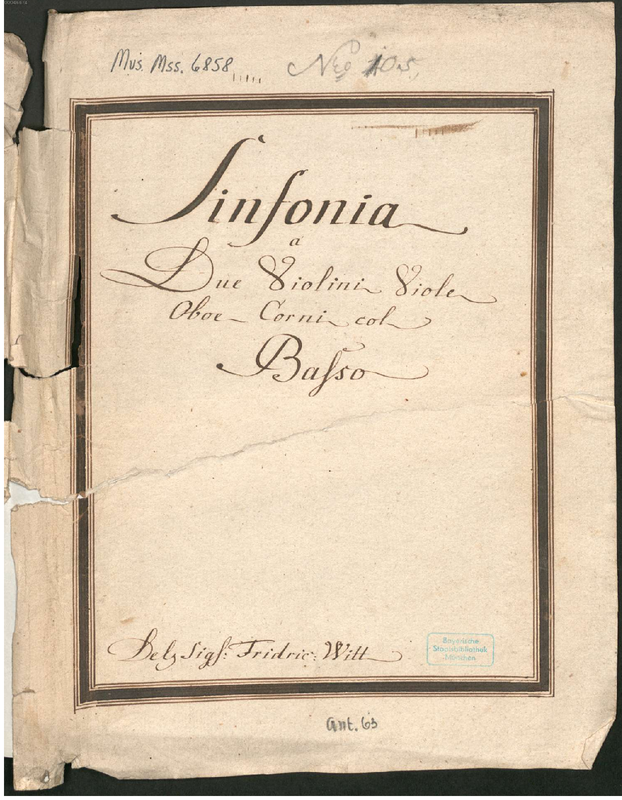 Mus. Mss. 6858
No 105.
Sinfonia
a
Due Violini Viole
Oboe Corni col
Basso
Del Sigr: Fridric: Witt
Bayerische
Staatsbibliothek
München
Ant. 63